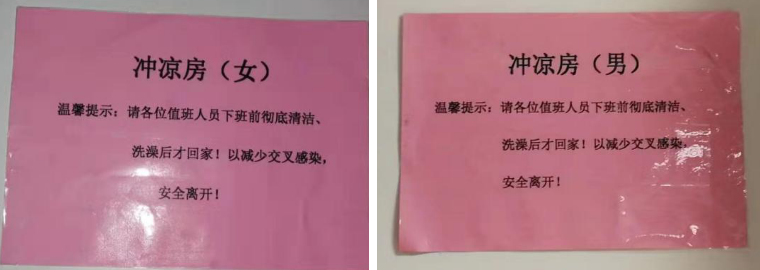 冲凉房（女）
温馨提示：请各位值班人员下班前彻底清洁、
洗澡后才回家！以减少交叉感染，
安全离开！
冲凉房（男）
温馨提示：请各位值班人员下班前彻底清洁、
洗澡后才回家！以减少交叉感染，
安全离开！